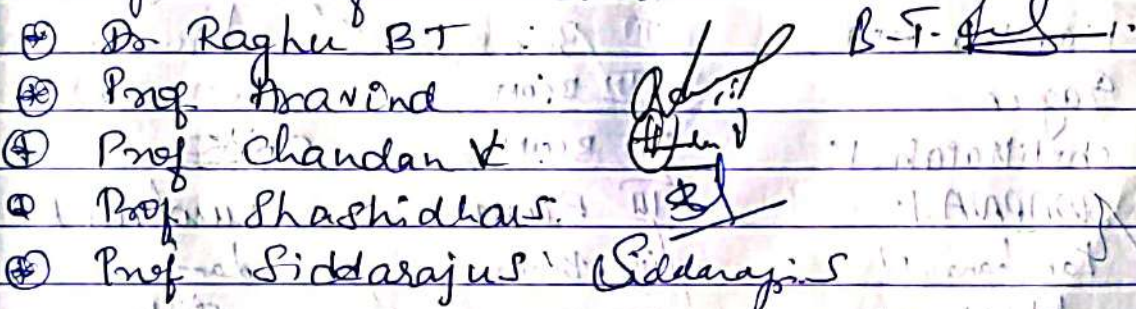 Dr Raghu BT B-T-
Prof. Aravind
Prof Chandan K
Prof. Shashidhar S.
Prof Siddaraju S Siddaraju S